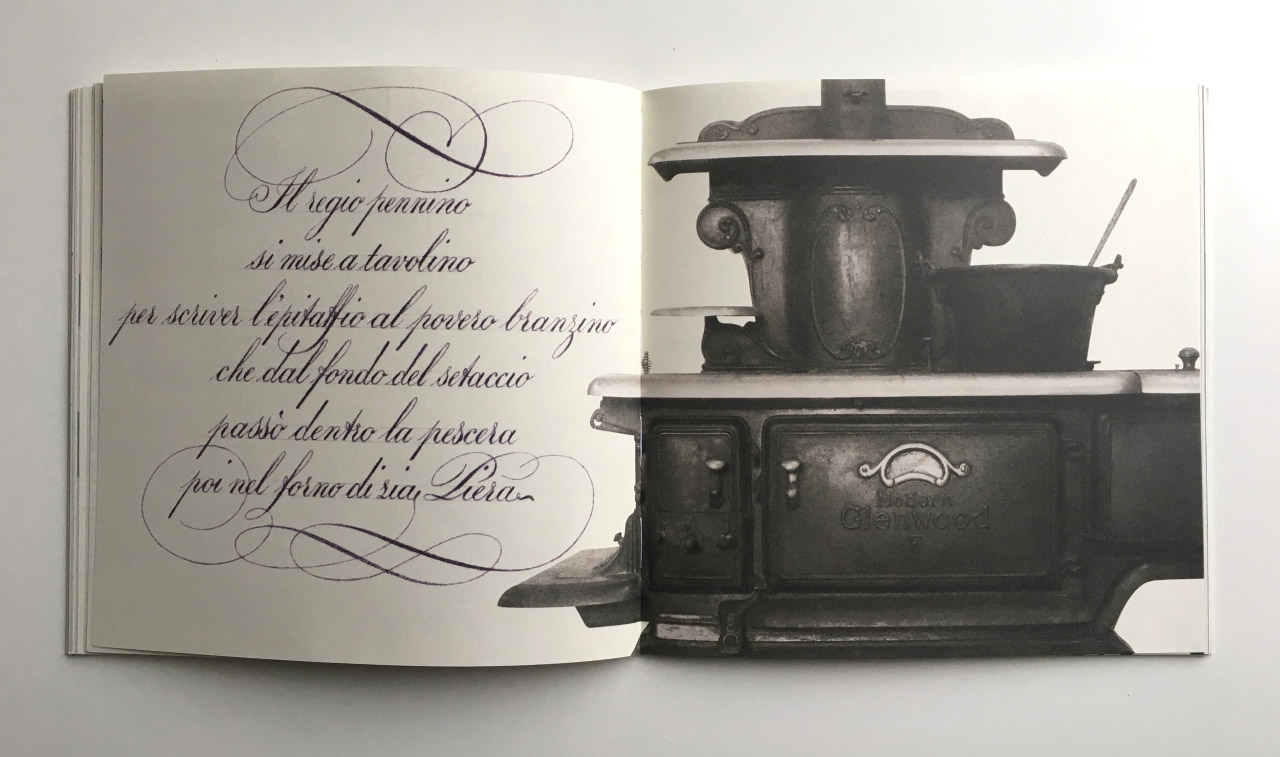 Il regio pennino
si mise a tavolino
per scriver l'epitaffio al povero branzino
che dal fondo del setaccio
passò dentro la pescera
poi nel forno di zia Piera
Modern
Glenwood
F